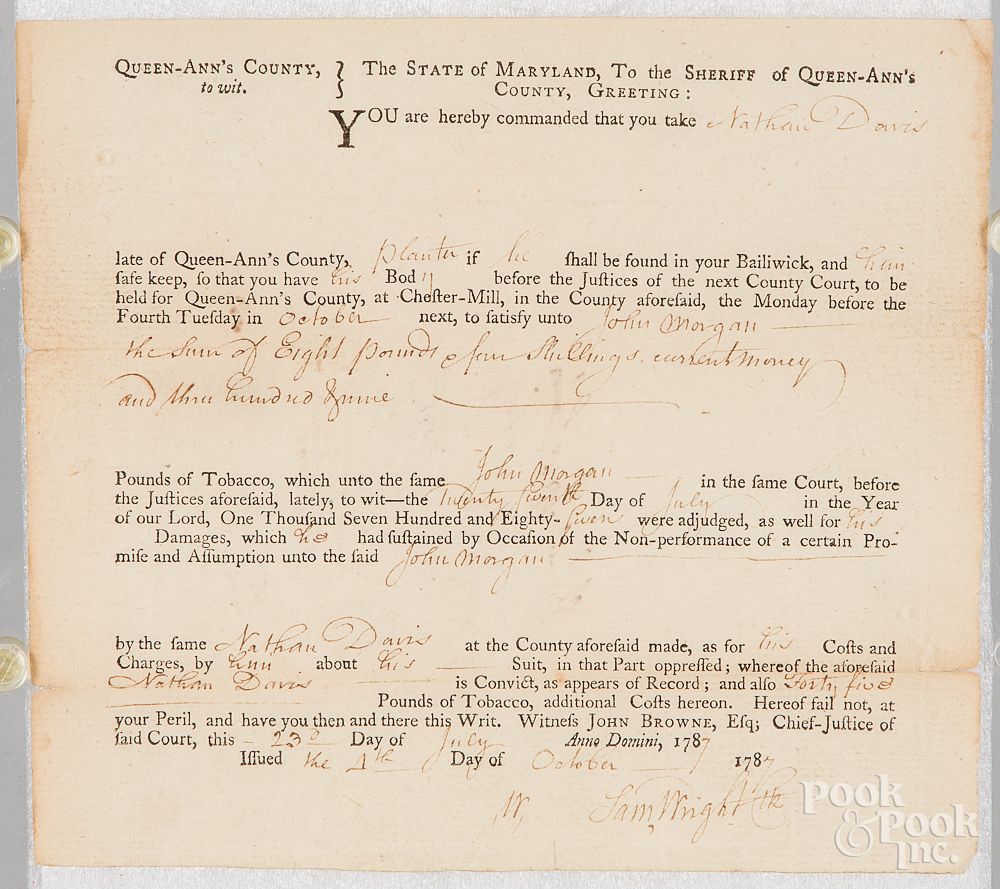 QUEEN-ANN'S COUNTY, to wit.
The STATE of MARYLAND, To the SHERIFF of QUEEN-ANN'S
COUNTY, GREETING:
YOU are hereby commanded that you take Nathan Davis
late of Queen-Ann's County, planter if he ſhall be found in your Bailiwick, and him
ſafe keep, ſo that you have his Body before the Juſtices of the next County Court, to be
held for Queen-Ann's County, at Cheſter-Mill, in the County aforeſaid, the Monday before the
Fourth Tueſday in October next, to ſatisfy unto John Morgan
the Sum of Eight pounds & four Shillings current money
and three hundred & nine
Pounds of Tobacco, which unto the ſame John Morgan in the ſame Court, before
the Juſtices aforeſaid, lately, to wit—the Day of July in the Year
of our Lord, One Thouſand Seven Hundred and Eighty-ſeven were adjudged, as well for his
Damages, which he had ſuſtained by Occaſion of the Non-performance of a certain Pro-
miſe and Aſſumption unto the ſaid John Morgan
by the ſame Nathan Davis at the County aforeſaid made, as for his Coſts and
Charges, by him about his Suit, in that Part oppreſſed; whereof the aforeſaid
Nathan Davis is Convict, as appears of Record; and alſo Forty five
Pounds of Tobacco, additional Coſts hereon. Hereof fail not, at
your Peril, and have you then and there this Writ. Witneſs JOHN BROWNE, Eſq; Chief-Juſtice of
ſaid Court, this 23d Day of July Anno Domini, 1787
Iſſued the 4th Day of October 1787
Sam Wright Clk
POOK
& POOK
INC.